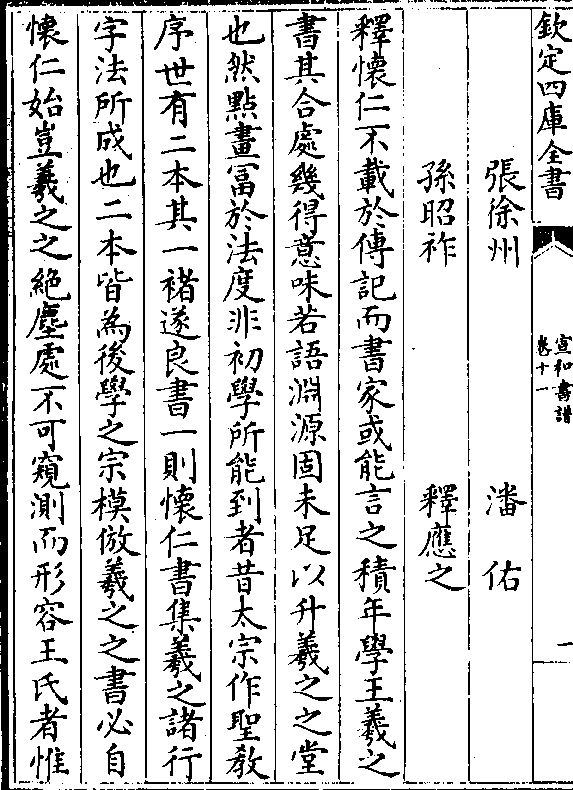 欽定四庫全書
宣和書譜
卷十一
一
張徐州 潘佑
孫昭祚 釋應之
釋懷仁不載於傳記而書家或能言之積年學王羲之
書其合處幾得意味若語淵源固未足以升羲之之堂
也然點畫冨於法度非初學所能到者昔太宗作聖教
序世有二本其一褚遂良書一則懷仁書集羲之諸行
字法所成也二本皆為後學之宗模倣羲之之書必自
懷仁始豈羲之之絶塵處不可窺測而形容王氏者惟